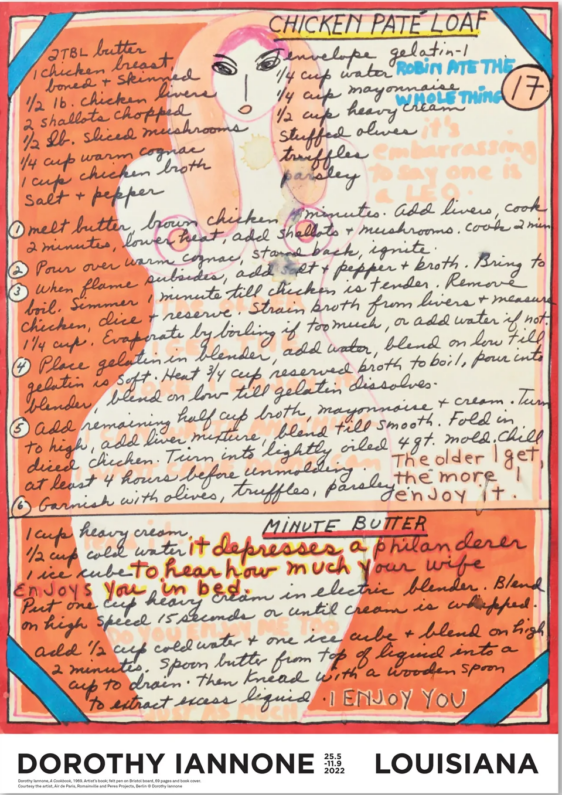 CHICKEN PATÉ LOAF
2TBL butter
1 chicken breast
boned + skinned
1/2 lb. chicken livers
2 shallots chopped
1/2 lb. sliced mushrooms
1/4 cup warm cognac
1 cup chicken broth
Salt + pepper
envelope gelatin-1
1/4 cup water
1/4 cup mayonnaise
1/2 cup heavy cream
stuffed olives
truffles
parsley
ROBIN ATE THE
WHOLE THING
17
it's
embarrassing
to say one is
a LEO.
① melt butter, brown chicken 4 minutes. Add livers, cook
2 minutes, lower heat, add shallots + mushrooms. cook 2 min
② Pour over warm cognac, stand back, ignite.
③ When flame subsides, add salt + pepper + broth. Bring to
boil. Simmer 1 minute till chicken is tender. Remove
chicken, dice + reserve. Strain broth from livers + measure
1 1/4 cup. Evaporate by boiling if too much, or add water if not.
④ Place gelatin in blender, add water, blend on low till
gelatin is soft. Heat 3/4 cup reserved broth to boil, pour into
blender, blend on low till gelatin dissolves.
⑤ Add remaining half cup broth, mayonnaise + cream. Turn
to high, add liver mixture, blend till smooth. Fold in
diced chicken. Turn into lightly oiled 4 qt. mold. Chill
at least 4 hours before unmolding
⑥ Garnish with olives, truffles, parsley
The older I get,
the more I
enjoy it.
MINUTE BUTTER
1 cup heavy cream
1/2 cup cold water
1 ice cube
it depresses a philanderer
to hear how much your wife
enjoys you in bed.
Put one cup heavy cream in electric blender. Blend
on high speed 15 seconds or until cream is whipped.
DO YOU ENJOY ME TOO
add 1/2 cup cold water + one ice cube + blend on high
2 minutes. Spoon butter from top of liquid into a
cup to drain. Then Knead with a wooden spoon
to extract excess liquid.
I ENJOY YOU
JUST AS MUCH
DOROTHY IANNONE
25.5
-11.9
2022
LOUISIANA
Dorothy Iannone, A Cookbook, 1969. Artist's book; felt pen on Bristol board, 69 pages and book cover.
Courtesy the artist, Air de Paris, Romainville and Peres Projects, Berlin © Dorothy Iannone